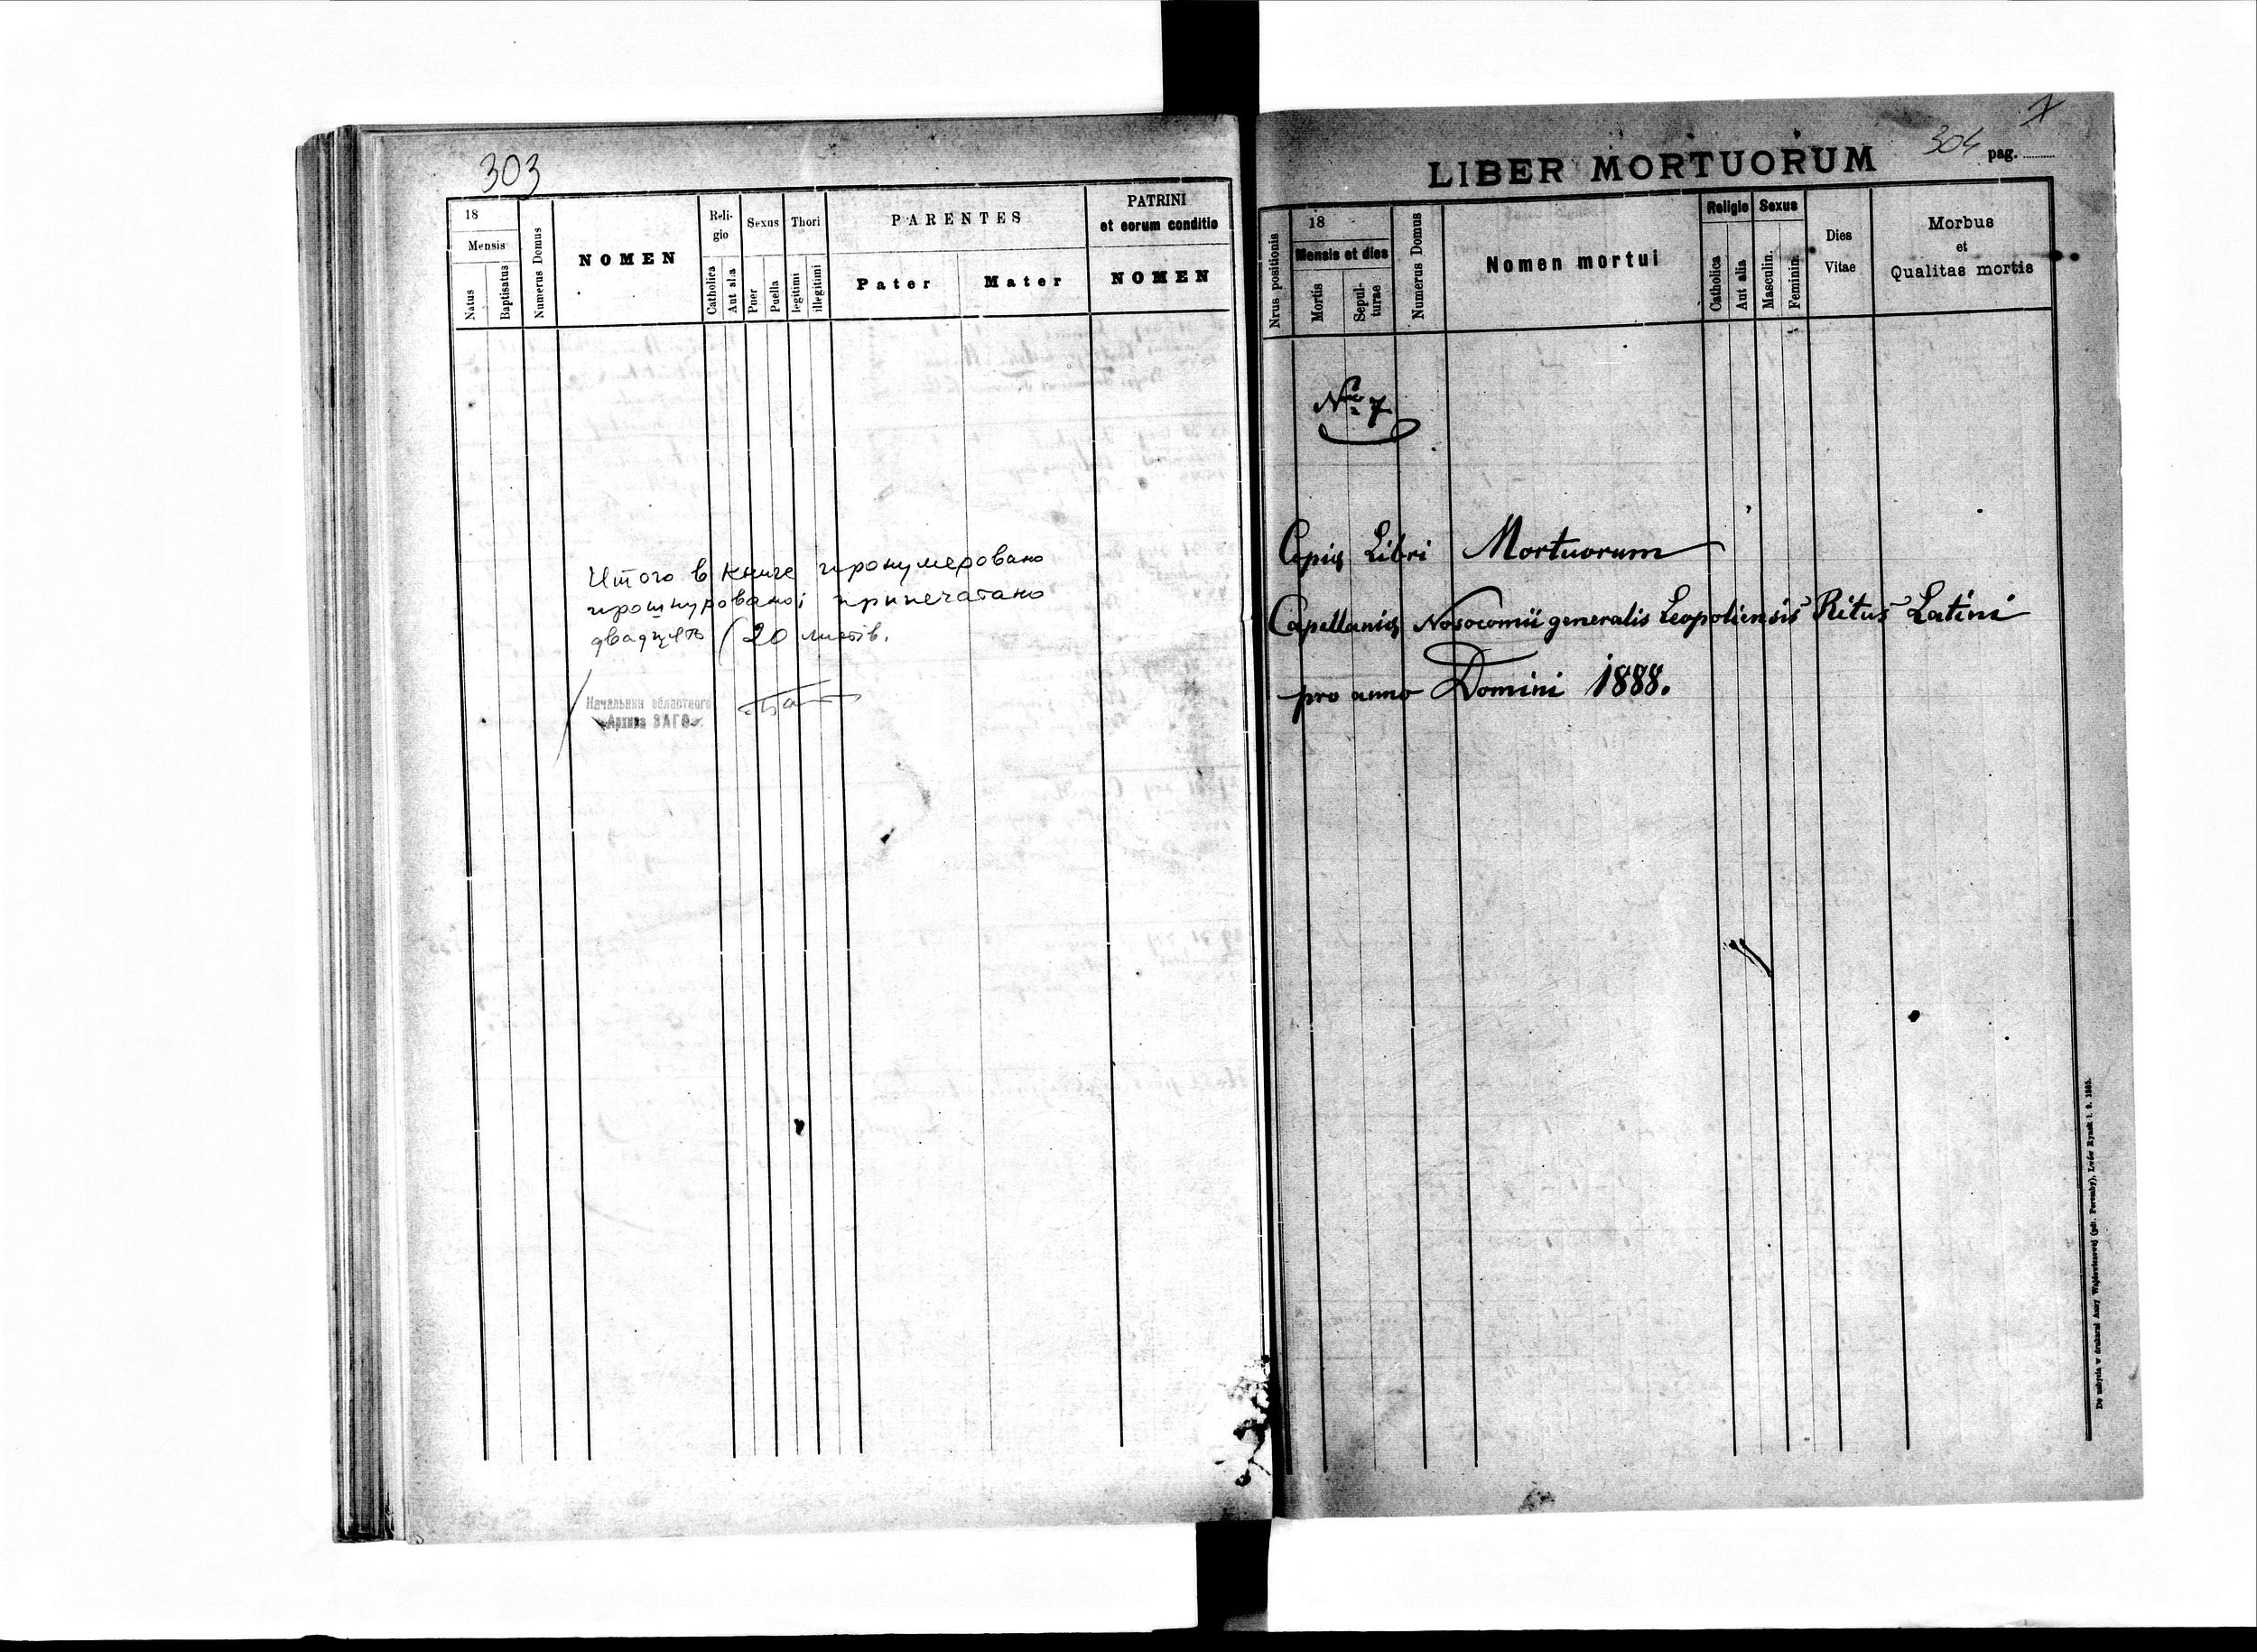 303
18
Mensis
Natus
Baptisatus
Numerus Domus
NOMEN
Reli-
gio
Catholica
Aut alia
Sexus
Puer
Puella
Thori
legitimi
illegitimi
PARENTES
Pater
Mater
PATRINI
et eorum conditio
NOMEN
Итого в книге пронумеровано
прошнуровано і припечатано
двадцять (20 листів.
Начальник областного
Архива ЗАГС
304
pag.
LIBER MORTUORUM
Nrus positionis
18
Mensis et dies
Mortis
Sepul-
turae
Numerus Domus
Nomen mortui
Religio
Catholica
Aut alia
Sexus
Masculin.
Feminin.
Dies
Vitae
Morbus
et
Qualitas mortis
Nro 7
Copia Libri Mortuorum
Capellaniae Nosocomii generalis Leopoliensis Ritus Latini
pro anno Domini 1888.
Do nabycia w drukarni Anny Wajdowiczowej (pdr. Poremby), Lwów Rynek l. 9. 1885.